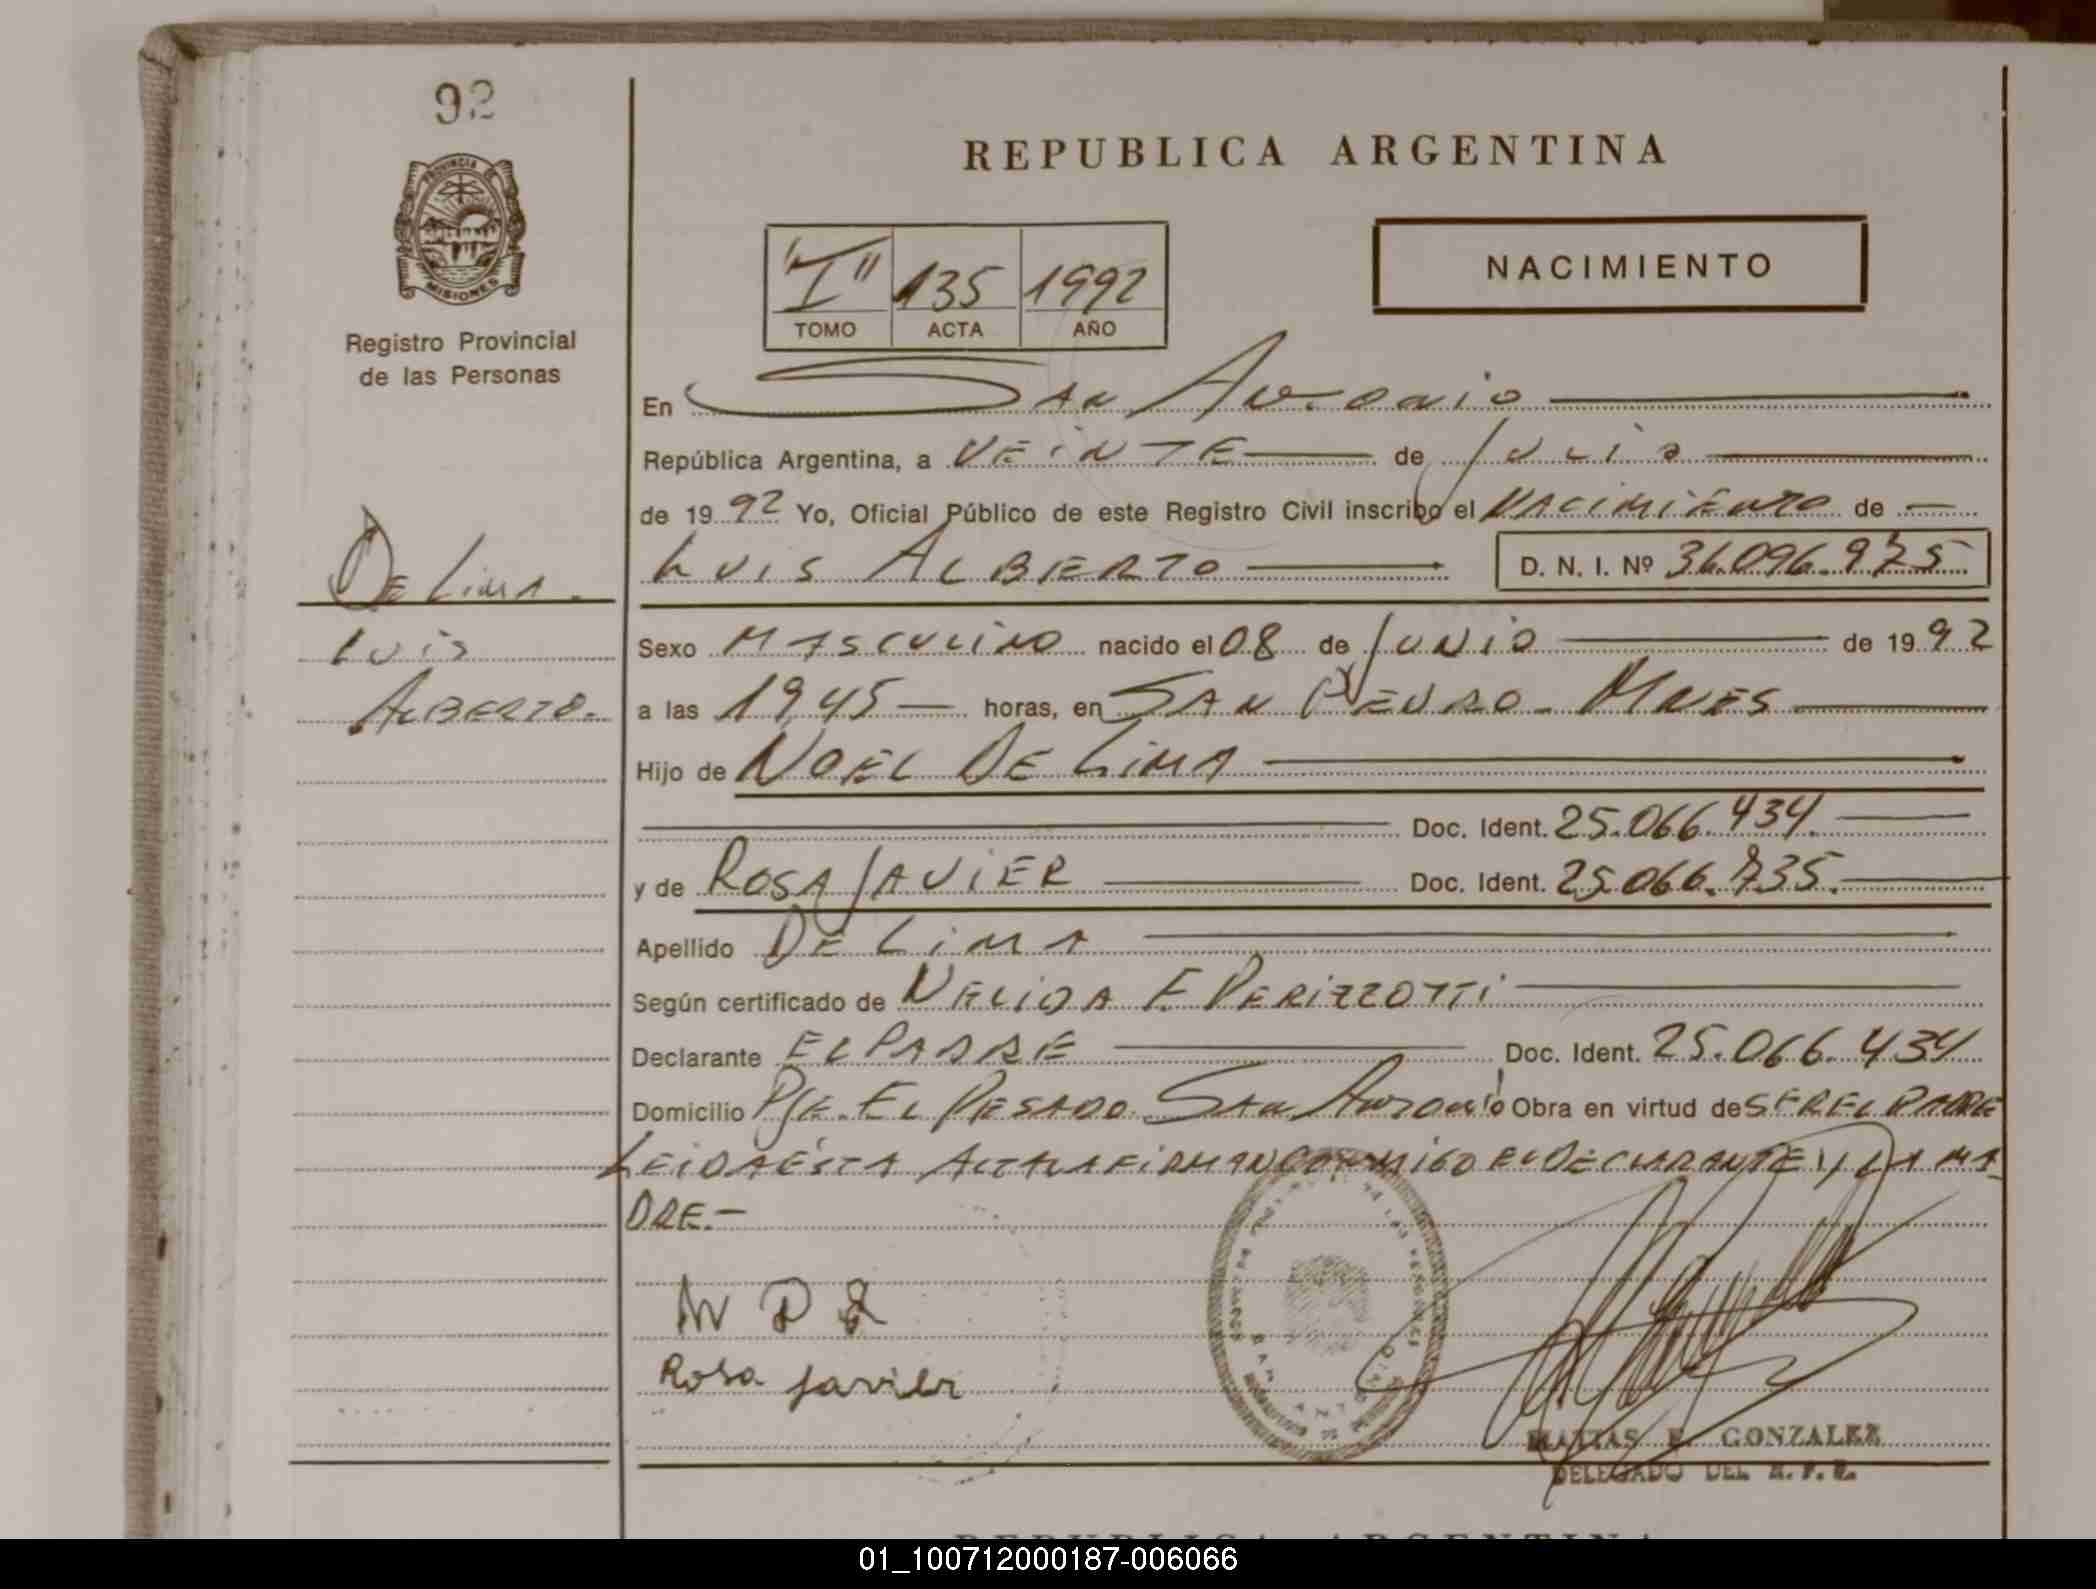 92
PROVINCIA DE
MISIONES
Registro Provincial
de las Personas
De Lima.
Luis
Alberto.
REPUBLICA ARGENTINA
"I" 135 1992
TOMO ACTA AÑO
NACIMIENTO
En San Antonio
República Argentina, a VEINTE de Julio
de 1992 Yo, Oficial Público de este Registro Civil inscribo el NACIMIENTO de
LUIS ALBERTO D. N. I. Nº 36.096.975
Sexo MASCULINO nacido el 08 de JUNIO de 1992
a las 19,45 horas, en SAN PEDRO - MNES
Hijo de NOEL DE LIMA
Doc. Ident. 25.066.434.
y de ROSA JAVIER Doc. Ident. 25.066.735.
Apellido DE LIMA
Según certificado de NELIDA F. PERIZZOTTI
Declarante EL PADRE Doc. Ident. 25.066.434
Domicilio Pje. EL PESADO SAN ANTONIO Obra en virtud de SER EL PADRE
LEIDA ÉSTA ACTA LA FIRMAN CONMIGO EL DECLARANTE Y LA MA
DRE.-
N D L
Rosa Javier
MATIAS E. GONZALEZ
DELEGADO DEL R. P. P.
REPUBLICA ARGENTINA
01_100712000187-006066